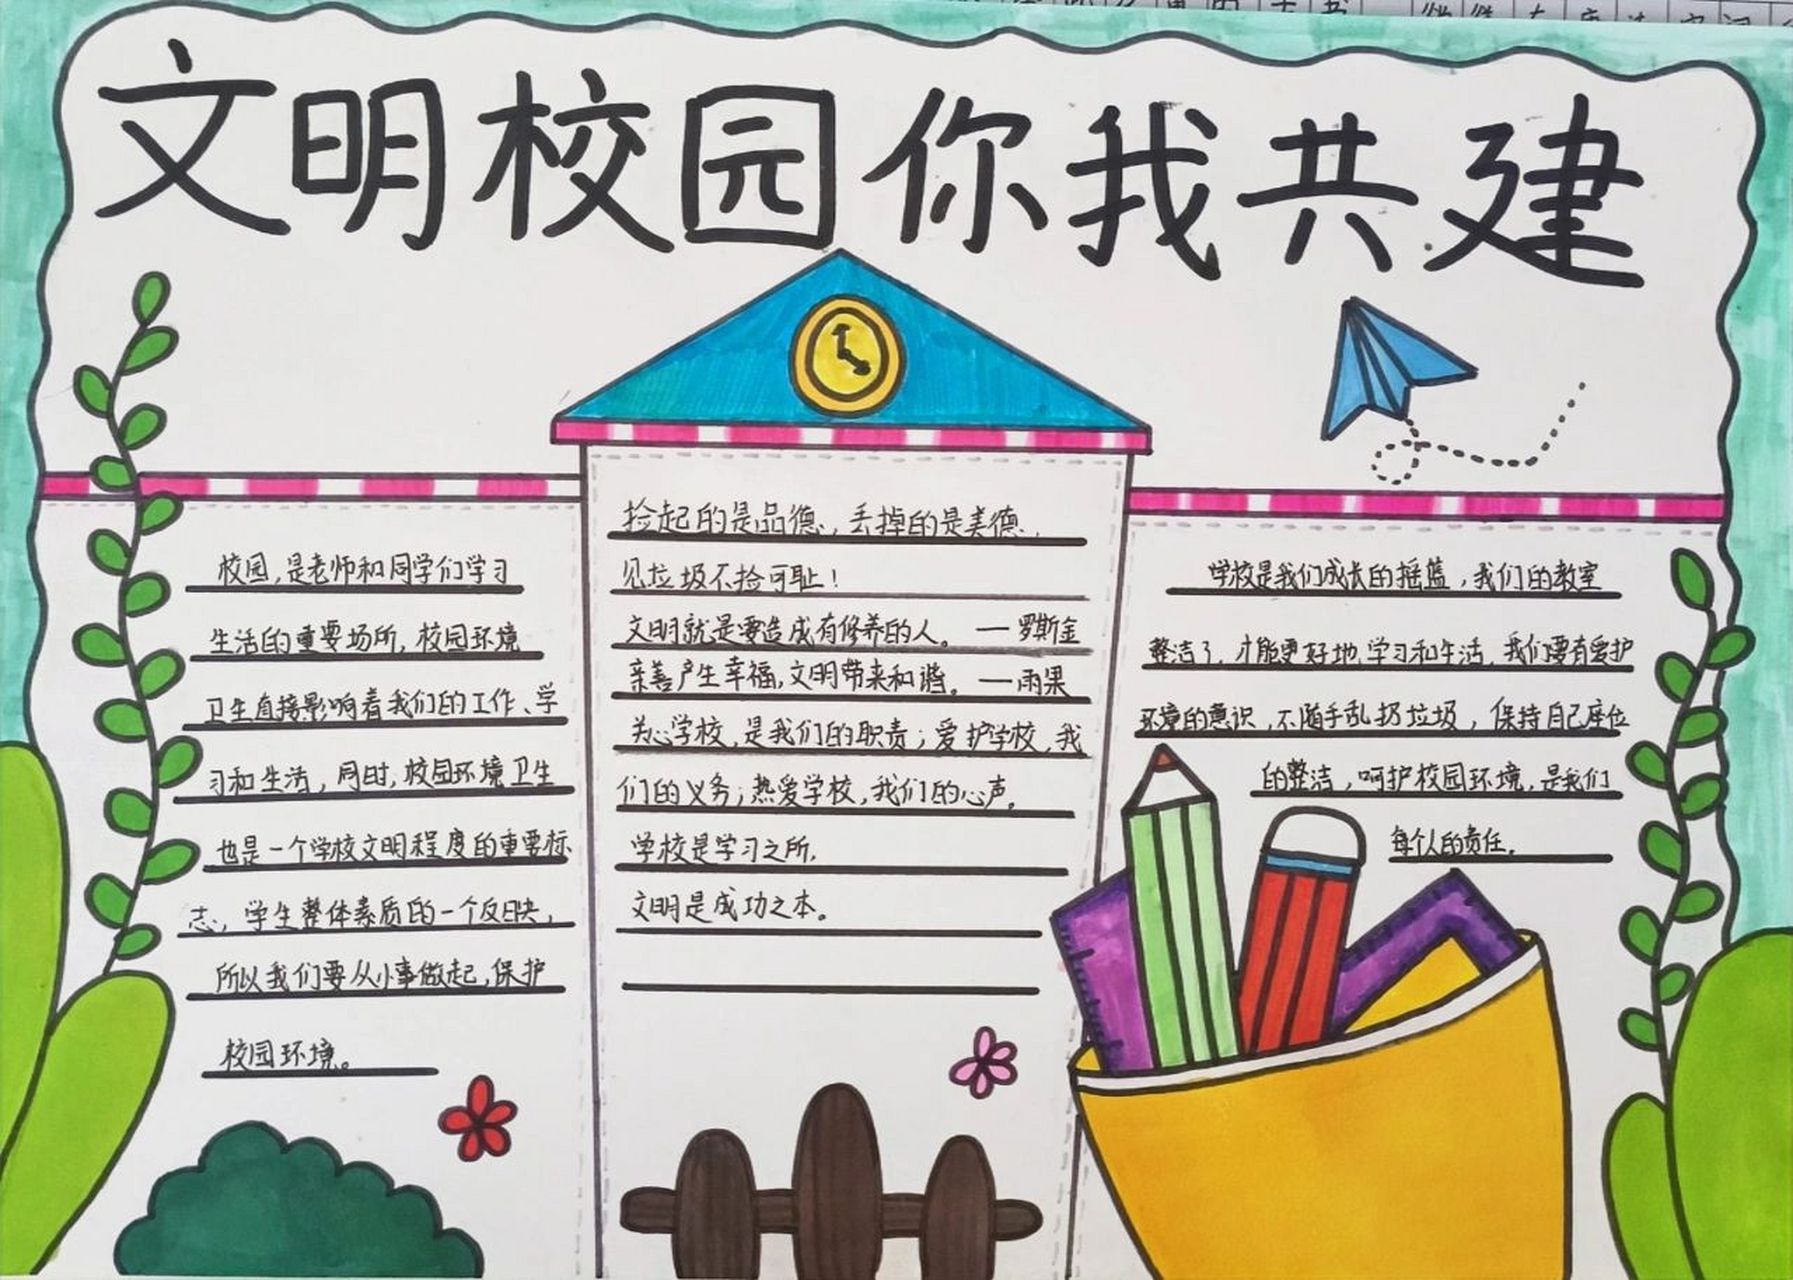 文明校园你我共建
校园,是老师和同学们学习
生活的重要场所,校园环境
卫生直接影响着我们的工作、学
习和生活,同时,校园环境卫生
也是一个学校文明程度的重要标
志,学生整体素质的一个反映,
所以我们要从小事做起,保护
校园环境。
捡起的是品德,丢掉的是美德,
见垃圾不捡可耻!
文明就是要造成有修养的人。—罗斯金
亲善产生幸福,文明带来和谐。—雨果
关心学校,是我们的职责;爱护学校,我
们的义务;热爱学校,我们的心声。
学校是学习之所,
文明是成功之本。
学校是我们成长的摇篮,我们的教室
整洁了,才能更好地学习和生活,我们要有爱护
环境的意识,不随手乱扔垃圾,保持自己座位
的整洁,呵护校园环境,是我们
每个人的责任。